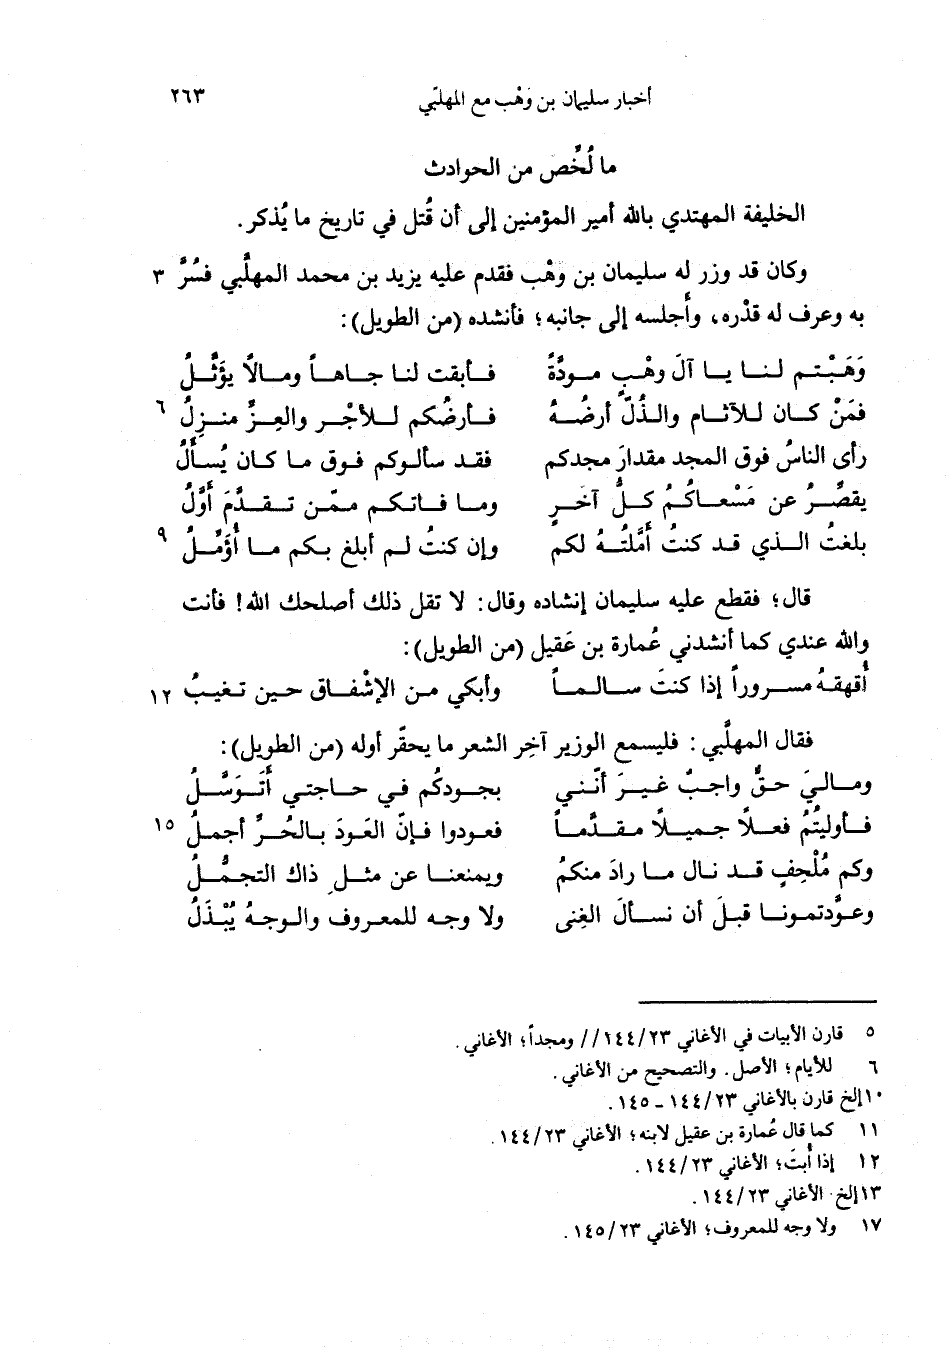 أخبار سليمان بن وَهْب مع المهلّبي ٢٦٣
ما لُخِّص من الحوادث
الخليفة المهتدي بالله أمير المؤمنين إلى أن قُتل في تاريخ ما يُذكر.
وكان قد وزر له سليمان بن وَهْب فقدم عليه يزيد بن محمد المهلَّبي فسُرَّ ٣
به وعرف له قدْره، وأجلسه إلى جانبه؛ فأنشده (من الطويل):
وَهَبْتم لنا يا آلَ وهْبٍ مودَّةً فأبقت لنا جاهاً ومالاً يؤَثَّلُ
فمَنْ كان للآثام والذُلّ أرضُهُ فأرضُكم للأجْر والعِزّ منزِلُ ٦
رأى الناسُ فوق المجد مقدارَ مجدكم فقد سألوكم فوق ما كان يُسألُ
يقصِّرُ عن مَسْعاكُمُ كلُّ آخَرٍ وما فاتكم ممّن تقدَّمَ أَوَّلُ
بلغتُ الذي قد كنتُ أمَّلتُهُ لكم وإن كنتُ لم أبلغ بكم ما أُؤَمِّلُ ٩
قال؛ فقطع عليه سليمان إنشاده وقال: لا تقل ذلك أصلحك الله! فأنت
والله عندي كما أنشدني عُمارة بن عَقيل (من الطويل):
أُقهقهُ مسروراً إذا كنتَ سالماً وأبكي من الإشْفاق حين تغيبُ ١٢
فقال المهلَّبي: فليسمع الوزير آخِر الشعر ما يحقّر أوله (من الطويل):
وماليَ حقٌّ واجبٌ غيرَ أنّني بجودكُم في حاجتي أَتَوَسَّلُ
فأوليتُمُ فعلاً جميلاً مقدَّماً فعودوا فإنّ العَودَ بالحُرِّ أجملُ ١٥
وكم مُلْحِفٍ قد نال ما رادَ منكمُ ويمنعنا عن مثلِ ذاك التجمُّلُ
وعوَّدتمونا قبلَ أن نسألَ الغِنى ولا وجه للمعروف والوجهُ يُبْذَلُ
٥ قارن الأبيات في الأغاني ١٤٤/٢٣// ومجداً؛ الأغاني.
٦ للأيام؛ الأصل. والتصحيح من الأغاني.
١٠إلخ قارن بالأغاني ١٤٤/٢٣ ـ ١٤٥.
١١ كما قال عُمارة بن عقيل لابنه؛ الأغاني ١٤٤/٢٣.
١٢ إذا أُبتَ؛ الأغاني ١٤٤/٢٣.
١٣إلخ الأغاني ١٤٤/٢٣.
١٧ ولا وجه للمعروف؛ الأغاني ١٤٥/٢٣.